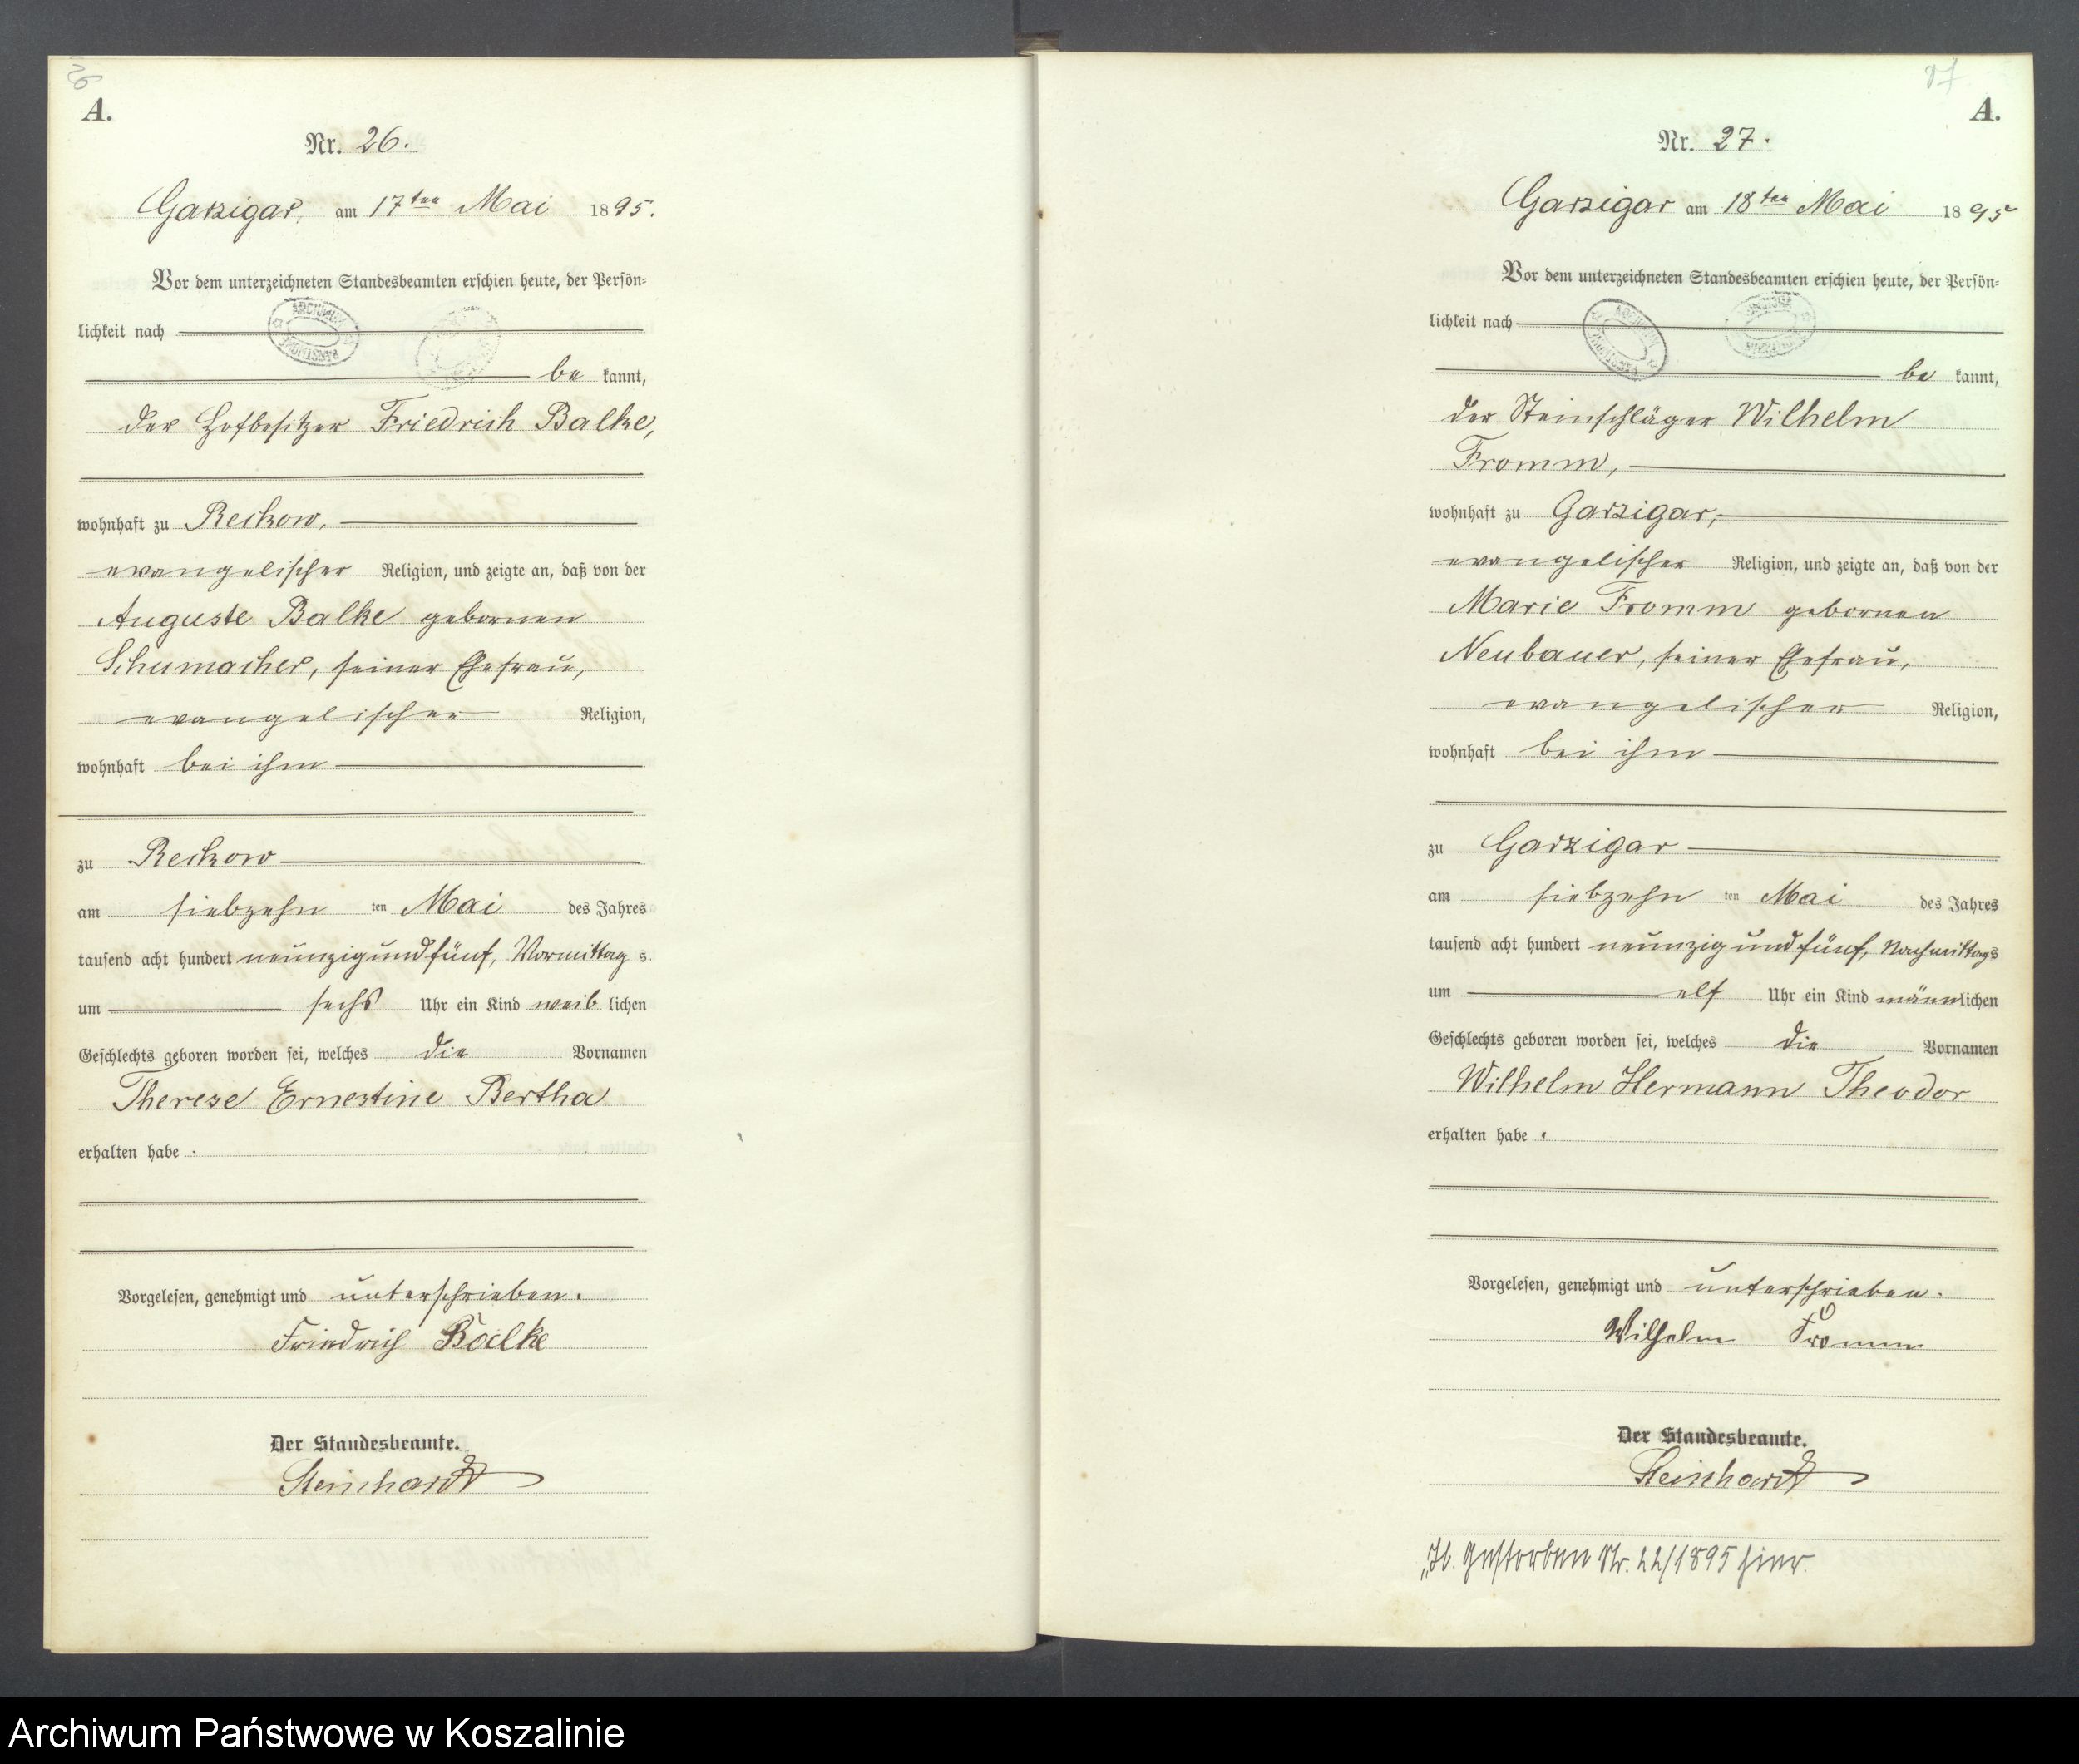 26
A.
Nr. 26.
Garzigar, am 17ten Mai 1895.
Vor dem unterzeichneten Standesbeamten erschien heute, der Persön=
lichkeit nach
be kannt,
der Hofbesitzer Friedrich Balke,
wohnhaft zu Reckow,
evangelischer Religion, und zeigte an, daß von der
Auguste Balke gebornen
Schumacher, seiner Ehefrau,
evangelischer Religion,
wohnhaft bei ihm
zu Reckow
am siebzehn ten Mai des Jahres
tausend acht hundert neunzig und fünf, Vormittag s
um sechs Uhr ein Kind weib lichen
Geschlechts geboren worden sei, welches die Vornamen
Therese Ernestine Bertha
erhalten habe.
Vorgelesen, genehmigt und unterschrieben.
Friedrich Balke
Der Standesbeamte.
Steinhardt
27
A.
Nr. 27.
Garzigar am 18ten Mai 1895
Vor dem unterzeichneten Standesbeamten erschien heute, der Persön=
lichkeit nach
be kannt,
der Steinschläger Wilhelm
Fromm,
wohnhaft zu Garzigar,
evangelischer Religion, und zeigte an, daß von der
Marie Fromm gebornen
Neubauer, seiner Ehefrau,
evangelischer Religion,
wohnhaft bei ihm
zu Garzigar
am siebzehn ten Mai des Jahres
tausend acht hundert neunzig und fünf, Nachmittags
um elf Uhr ein Kind männlichen
Geschlechts geboren worden sei, welches die Vornamen
Wilhelm Hermann Theodor
erhalten habe.
Vorgelesen, genehmigt und unterschrieben.
Wilhelm Fromm
Der Standesbeamte.
Steinhardt
gestorben Nr. 22/1895 hier.
Archiwum Państwowe w Koszalinie